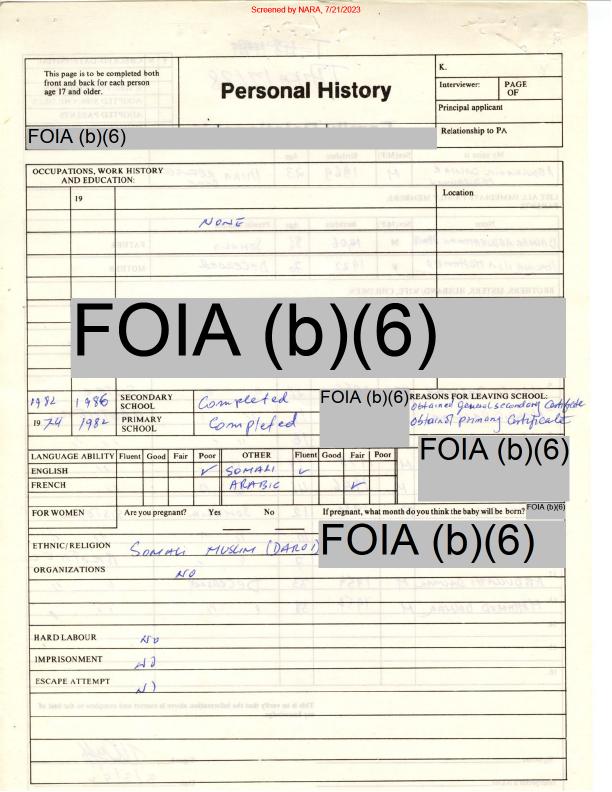 Screened by NARA, 7/21/2023
This page is to be completed both
front and back for each person
age 17 and older.
Personal History
K.
Interviewer:
PAGE
OF
Principal applicant
Relationship to PA
FOIA (b)(6)
OCCUPATIONS, WORK HISTORY
AND EDUCATION:
19
Location
NONE
FOIA (b)(6)
1982 1986 SECONDARY SCHOOL Completed
FOIA (b)(6)
REASONS FOR LEAVING SCHOOL:
obtained general secondary Certificate
1974 1982 PRIMARY SCHOOL Completed
obtained primary Certificate
FOIA (b)(6)
LANGUAGE ABILITY Fluent Good Fair Poor OTHER Fluent Good Fair Poor
ENGLISH ✓ SOMALI ✓
FRENCH ARABIC ✓
FOR WOMEN Are you pregnant? Yes No If pregnant, what month do you think the baby will be born? FOIA (b)(6)
ETHNIC/RELIGION SOMALI MUSLIM (DAROD)
FOIA (b)(6)
ORGANIZATIONS NO
HARD LABOUR NO
IMPRISONMENT NO
ESCAPE ATTEMPT NO